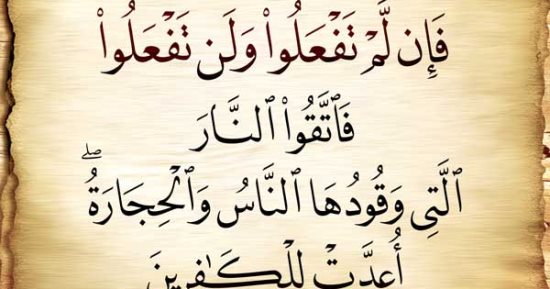 فَإِن لَّمْ تَفْعَلُوا۟ وَلَن تَفْعَلُوا۟
فَٱتَّقُوا۟ ٱلنَّارَ
ٱلَّتِى وَقُودُهَا ٱلنَّاسُ وَٱلْحِجَارَةُ ۖ
أُعِدَّتْ لِلْكَـٰفِرِينَ